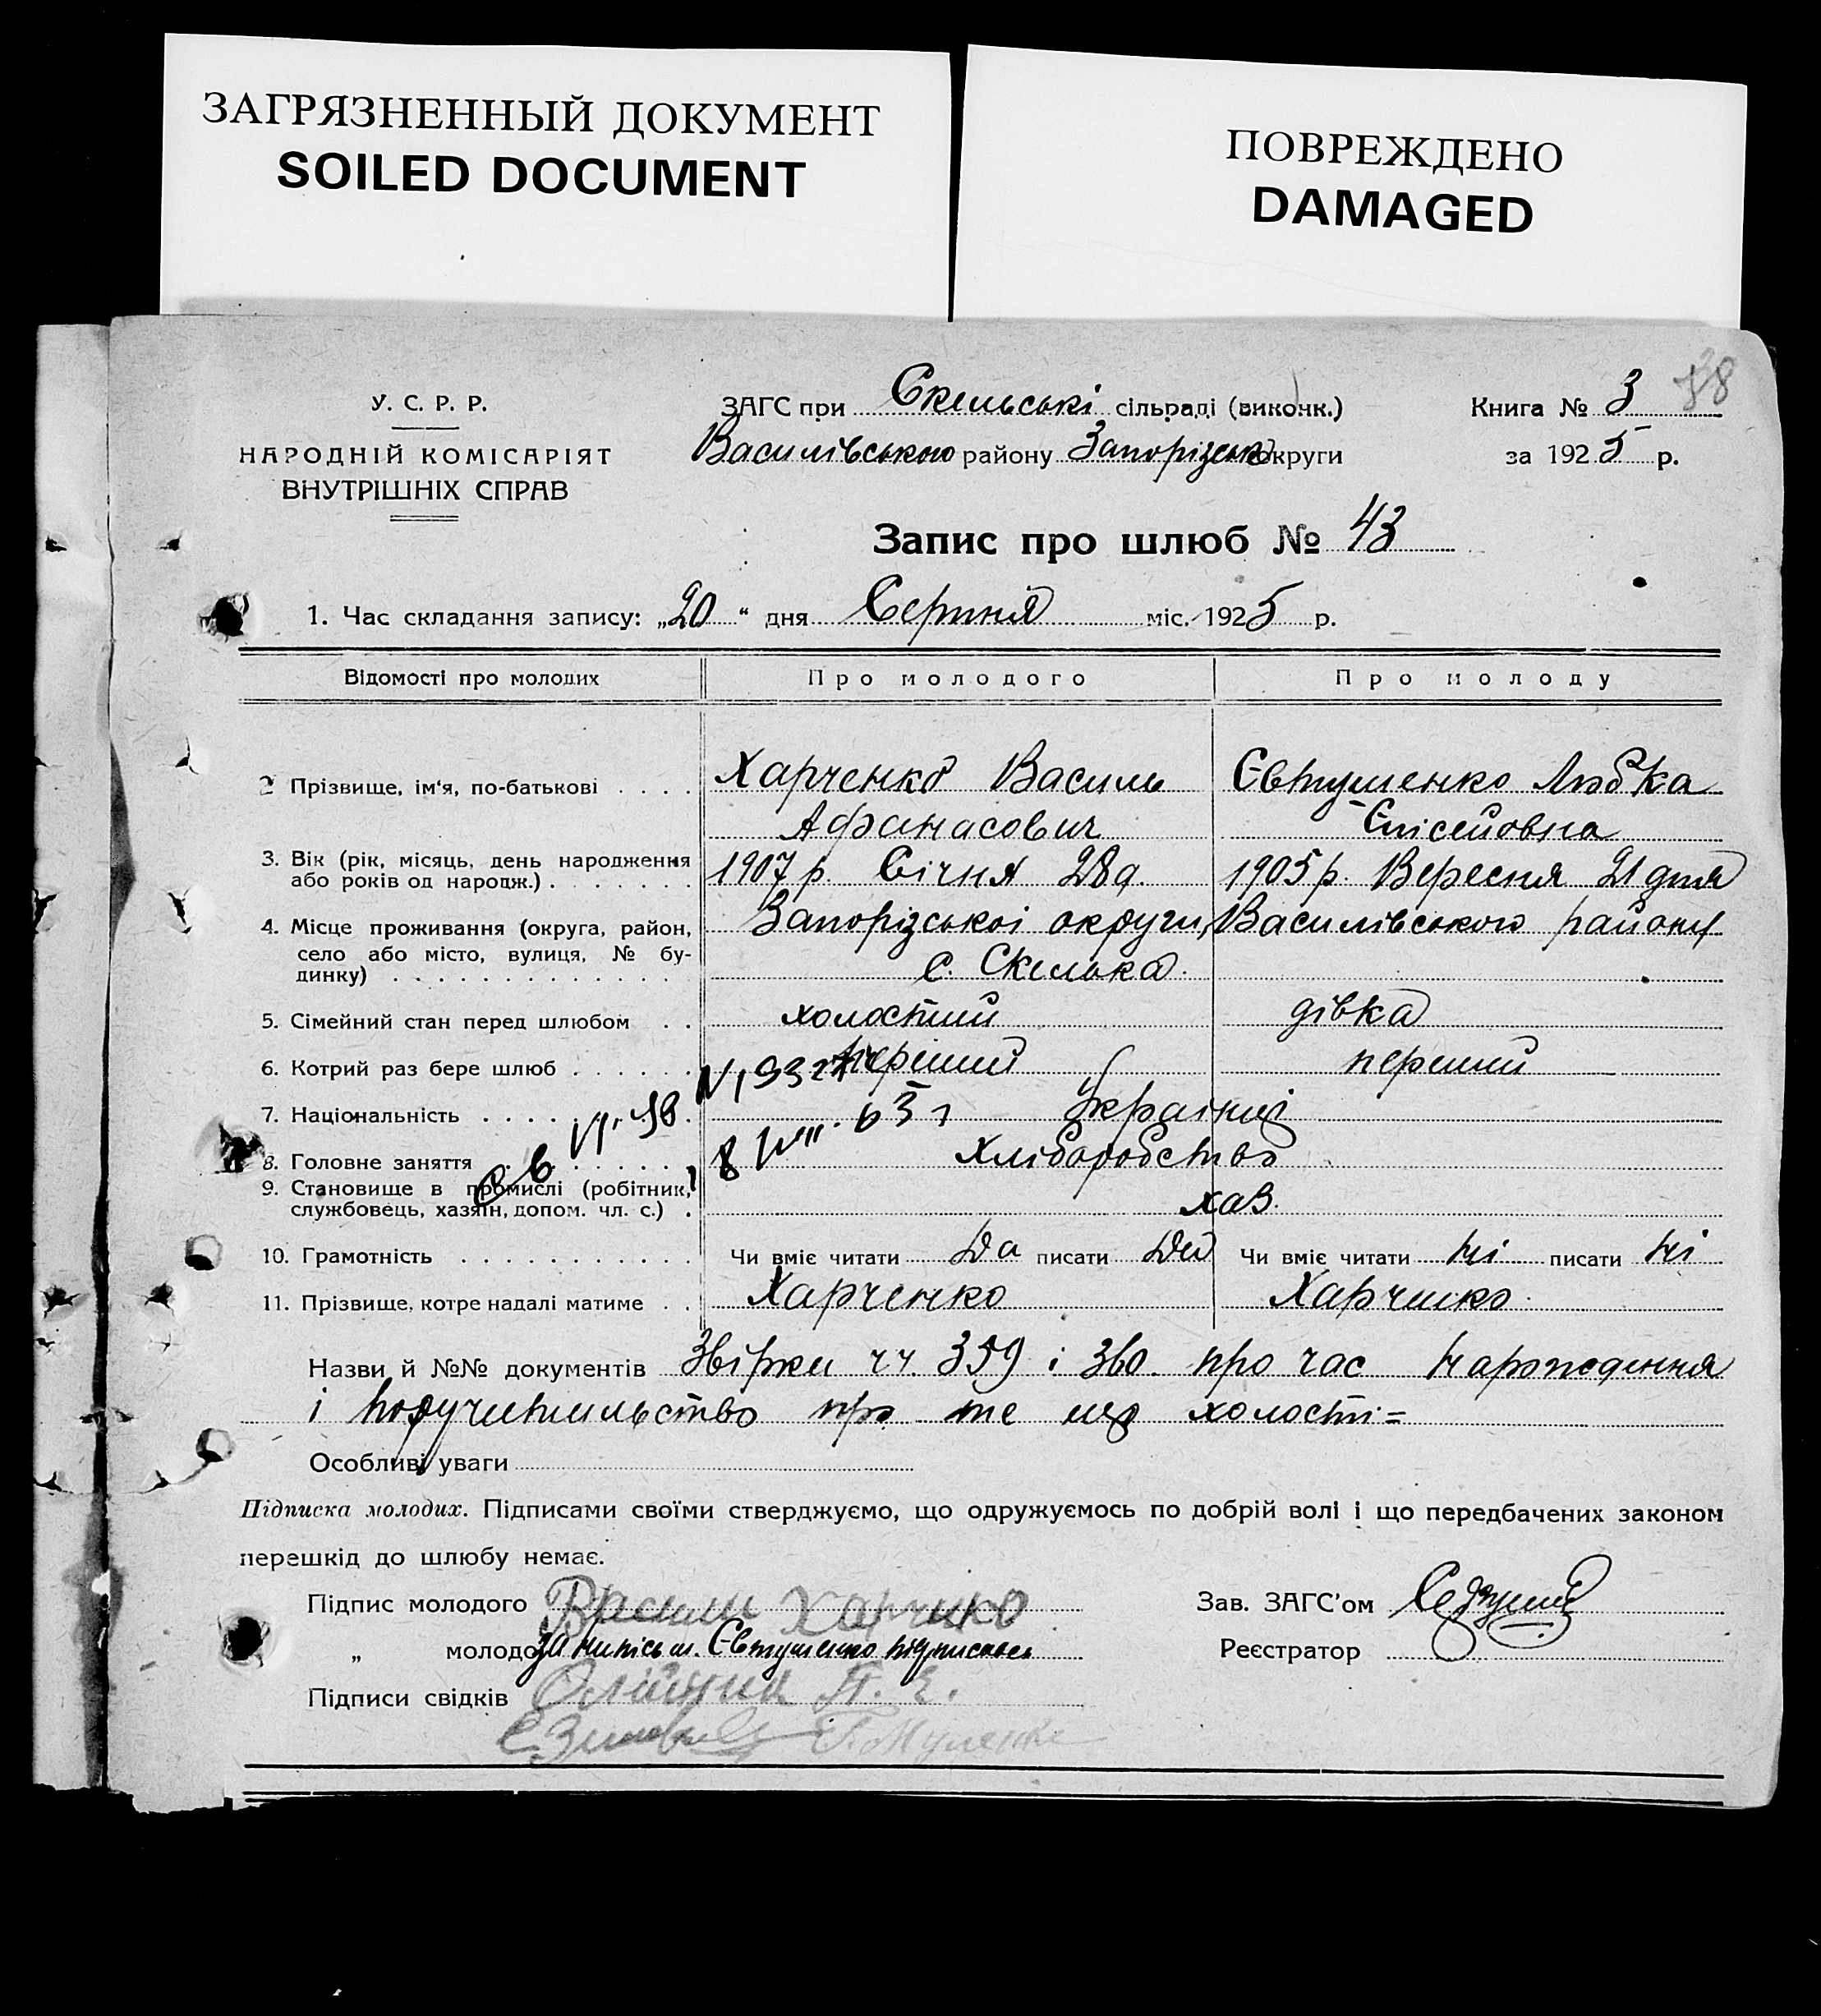 ЗАГРЯЗНЕННЫЙ ДОКУМЕНТ
SOILED DOCUMENT
ПОВРЕЖДЕНО
DAMAGED
У. С. Р. Р.
НАРОДНІЙ КОМІСАРІЯТ
ВНУТРІШНІХ СПРАВ
ЗАГС при Скельські сільраді (виконк.)
Василівською району Запорізськ округи
Книга № 3
за 1925 р.
38
Запис про шлюб № 43
1. Час складання запису: „20“ дня Серпня міс. 1925 р.
Відомості про молодих Про молодого Про молоду
2 Прізвище, ім'я, по-батькові . . . . Харченко Василь Євтушенко Любка
Афанасович Єлісейовна
3. Вік (рік, місяць, день народження
або років од народж.) . . . . . . . 1907 р. Січня 28 д. 1905 р. Вересня 21 дня
4. Місце проживання (округа, район, Запорізської округи, Василівського району
село або місто, вулиця, № бу-
динку) . . . . . . . . . . . . . с. Скелька.
5. Сімейний стан перед шлюбом . . холостий дівка
6. Котрий раз бере шлюб . . . . . . перший перший
7. Національність . . . . . . . . . Українці
8. Головне заняття . . . . . . . . Хліборобство
9. Становище в промислі (робітник,
службовець, хазяїн, допом. чл. с.) . хаз.
10. Грамотність . . . . . . . . . . . Чи вміє читати Да писати Да Чи вміє читати Ні писати Ні
11. Прізвище, котре надалі матиме . . Харченко Харченко.
Назви й №№ документів Звірки чч. 359 і 360. про час народження
і поручительство про те що холості=
Особливі уваги
Підписка молодих. Підписами своїми стверджуємо, що одружуємось по добрій волі і що передбачених законом
перешкід до шлюбу немає.
Підпис молодого Василь Харченко
„ молодо за Євтушенко підписався
Підписи свідків Олійник П. Е.
Зав. ЗАГС'ом
Реєстратор